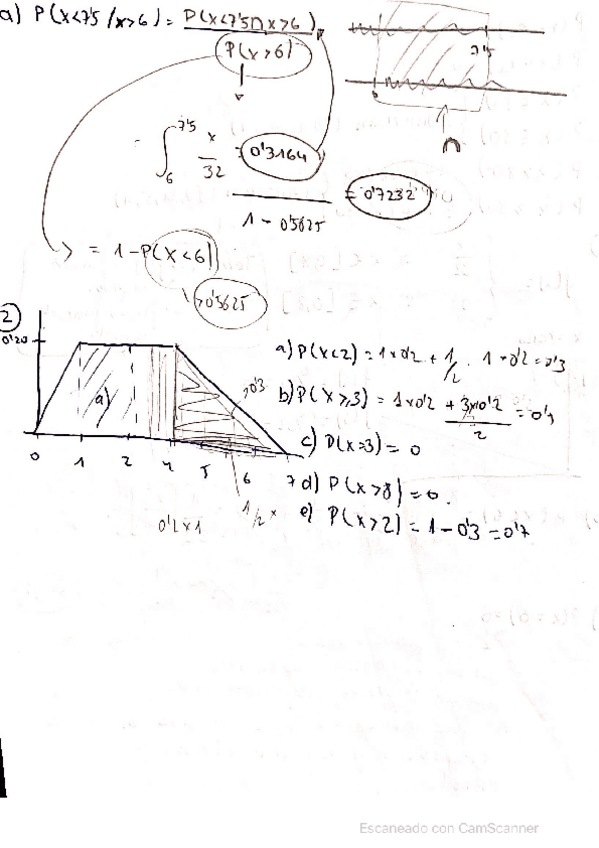 a) P(x<7'5 / x>6) = P(x<7'5 ∩ x>6)
P(x>6)
7'5
6
∩
∫ 7'5 6 x/32 = 0'3164
= 0'7232
1 - 0'5625
= 1 - P(x<6)
0'5625
2
0'20
a)
0'3
0 1 2 4 5 6 7
0'2x1
1/2 x
a) P(x<2) = 1x0'2 + 1/2 · 1x0'2 = 0'3
b) P(x≥3) = 1x0'2 + 3x0'2/2 =
c) P(x=3) = 0
d) P(x>8) = 0.
e) P(x>2) = 1 - 0'3 = 0'7
Escaneado con CamScanner